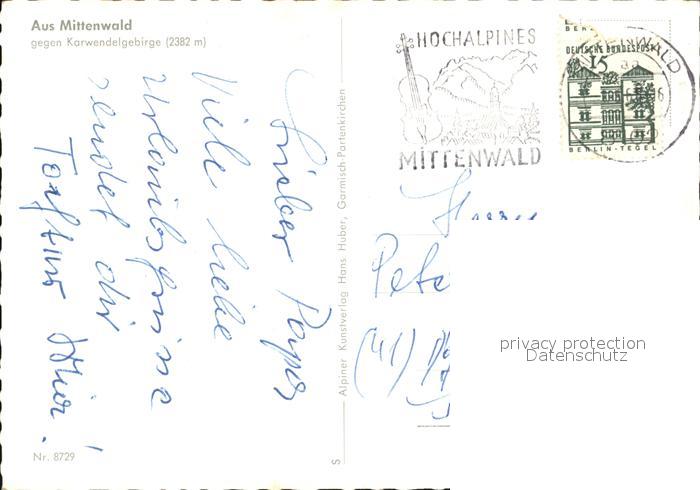 Aus Mittenwald
gegen Karwendelgebirge (2382 m)
HOCHALPINES
MITTENWALD
DEUTSCHE BUNDESPOST
15
BERLIN-TEGEL
Lieber Papa
Viele liebe
Urlaubsgrüsse
sendet dir
Alpiner Kunstverlag Hans Huber, Garmisch-Partenkirchen
Pete
(41)
privacy protection
Datenschutz
Nr. 8729
S